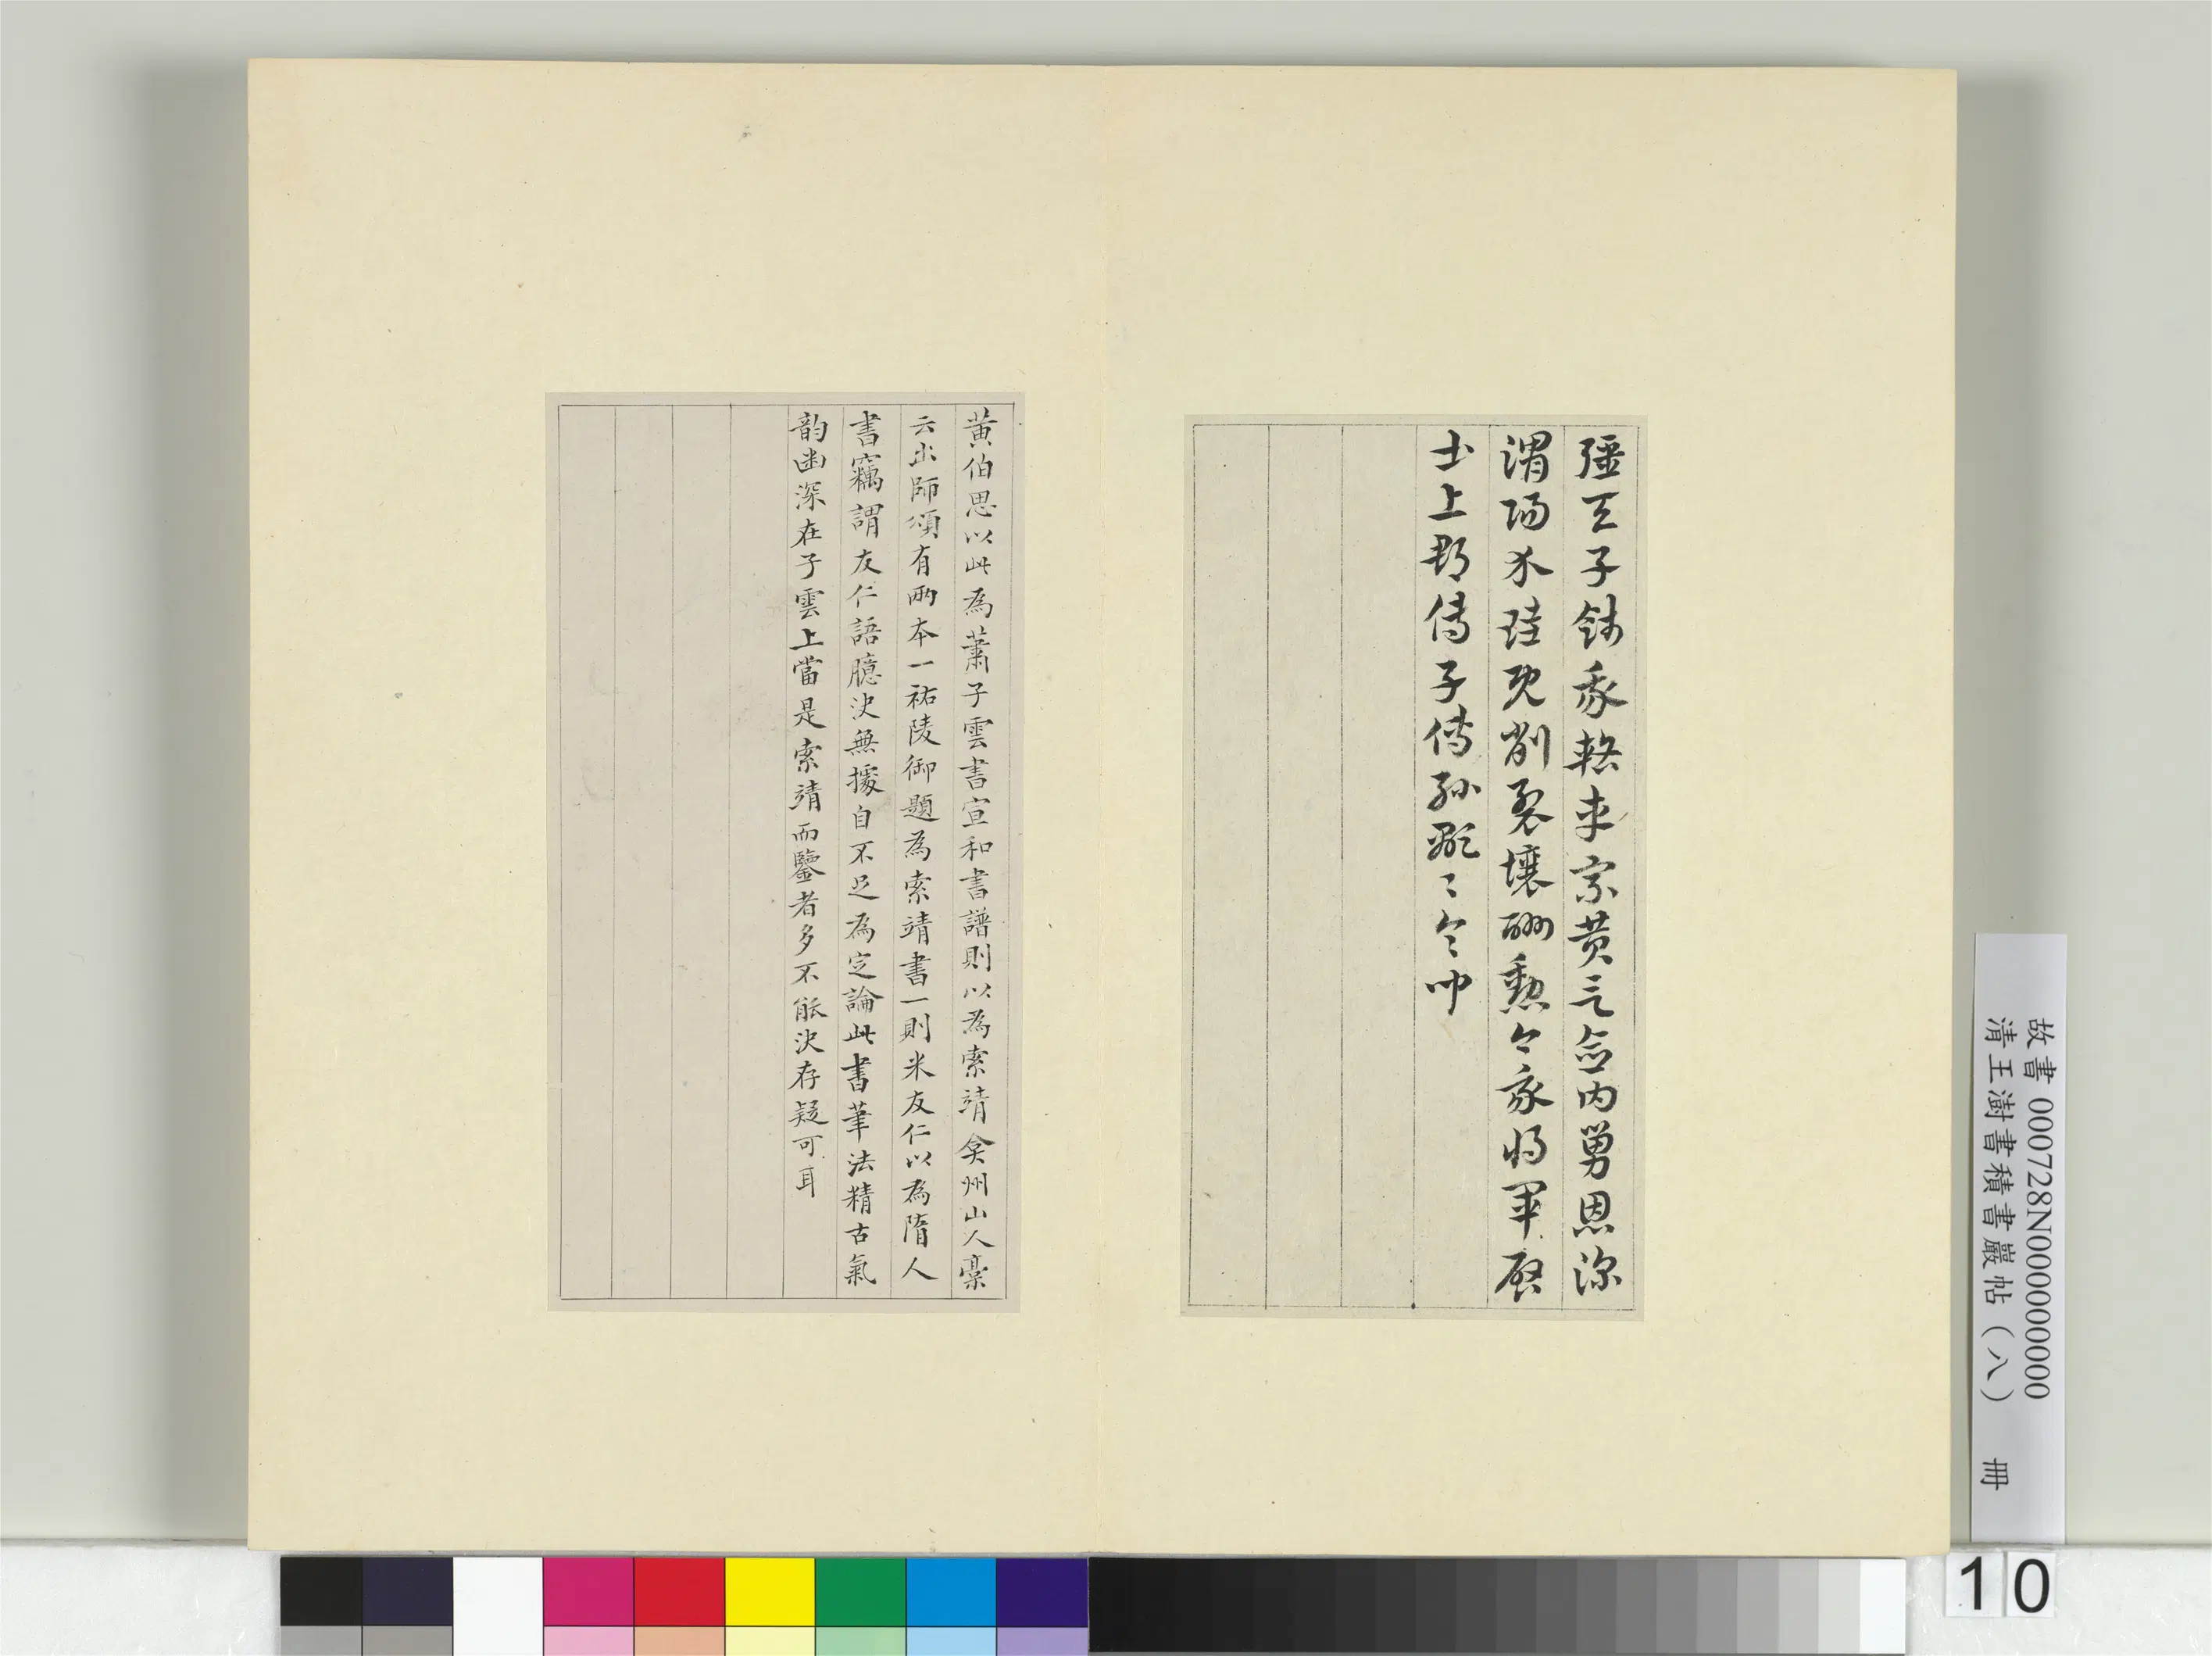 疆天子餞我輅車乘黃言念內舅恩深
渭陽介珪既削裂壤酬勳今我將軍啟
土上郡傳子傳孫顯〻令問
黃伯思以此為蕭子雲書宣和書譜則以為索靖弇州山人稾
云出師頌有兩本一祐陵御題為索靖書一則米友仁以為隋人
書竊謂友仁語臆決無據自不足為定論此書筆法精古氣
韵幽深在子雲上當是索靖而鑒者多不能決存疑可耳
故書 000728N000000000
清王澍書積書巖帖（八） 冊
10